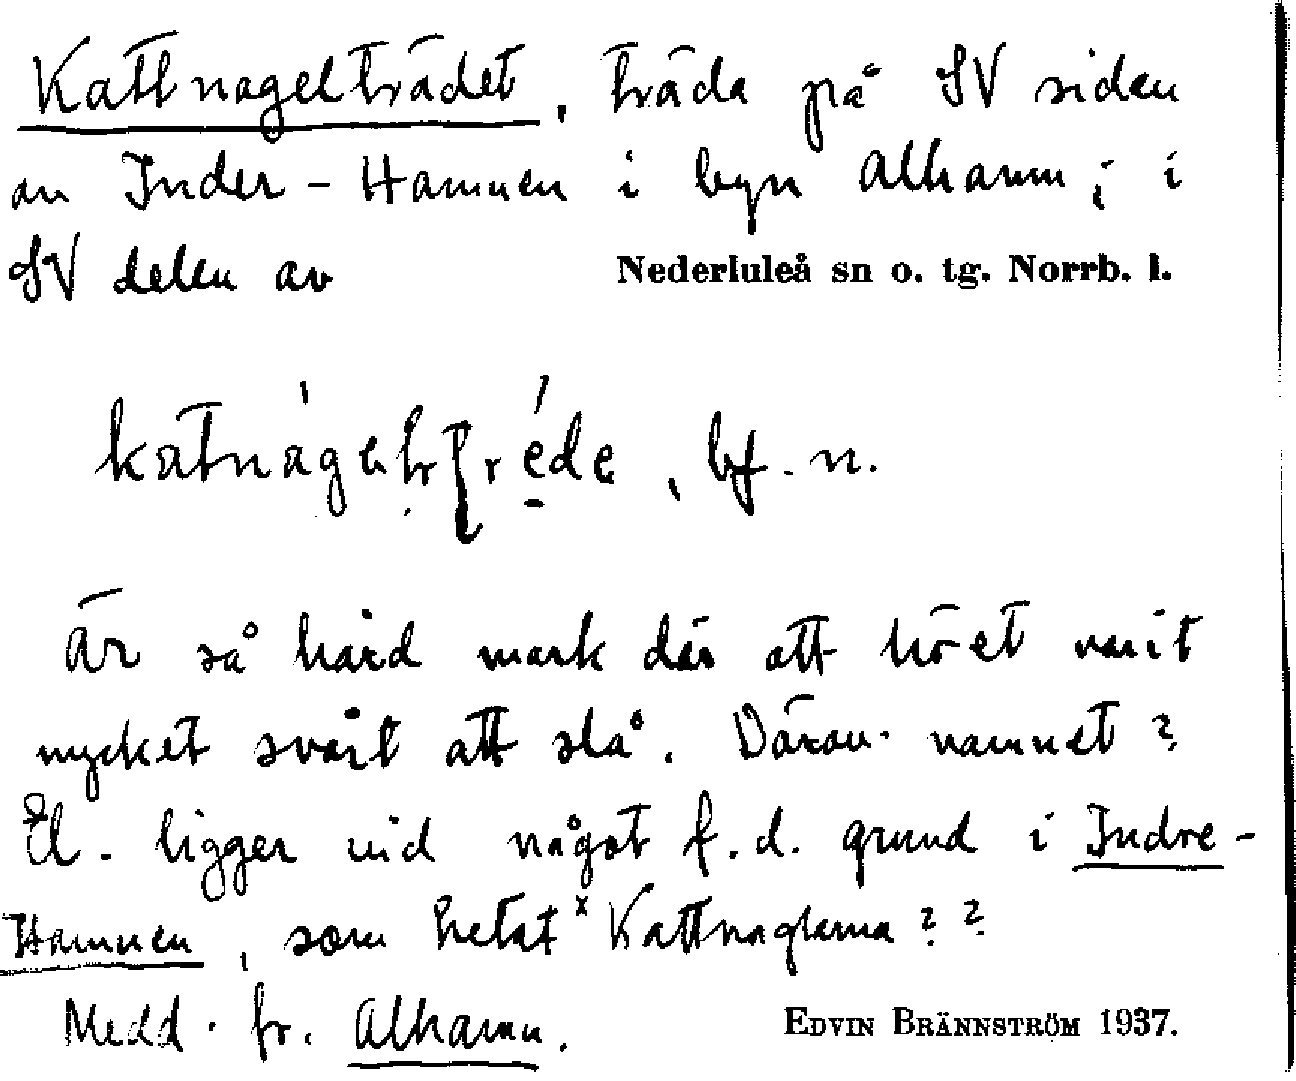 Kattnagelträdet, träda på SV siden
av Inder-Hamnen i byn Alhamn; i
SV delen av Nederluleå sn o. tg. Norrb. l.
bf. n.
Är så hård mark där att höet varit
mycket svårt att slå. Därav namnet?
El. ligger vid något f.d. grund i Indre-
Hamnen, som hetat ˣKattnaglarna??
Medd. fr. Alhamn. EDVIN BRÄNNSTRÖM 1937.